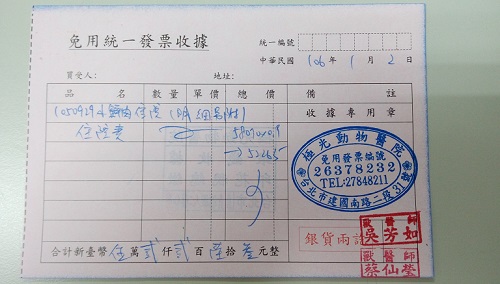 免用統一發票收據
統一編號
中華民國 106 年 1 月 2 日
買受人： 地址：
品名 數量 單價 總價 備註
1050929 住院 (明細另附)
住院費 58070×0.9
→52263
收據專用章
極光動物醫院
免用發票編號
26378232
TEL:27848211
台北市建國南路二段31號
銀貨兩訖
獸醫師
吳芳如
獸醫師
蔡仙瑩
合計新臺幣 伍 萬 貳 仟 貳 百 陸 拾 叁 元整